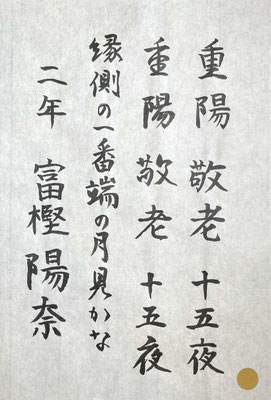 重陽 敬老 十五夜
重陽 敬老 十五夜
縁側の一番端の月見かな
二年 富樫陽奈